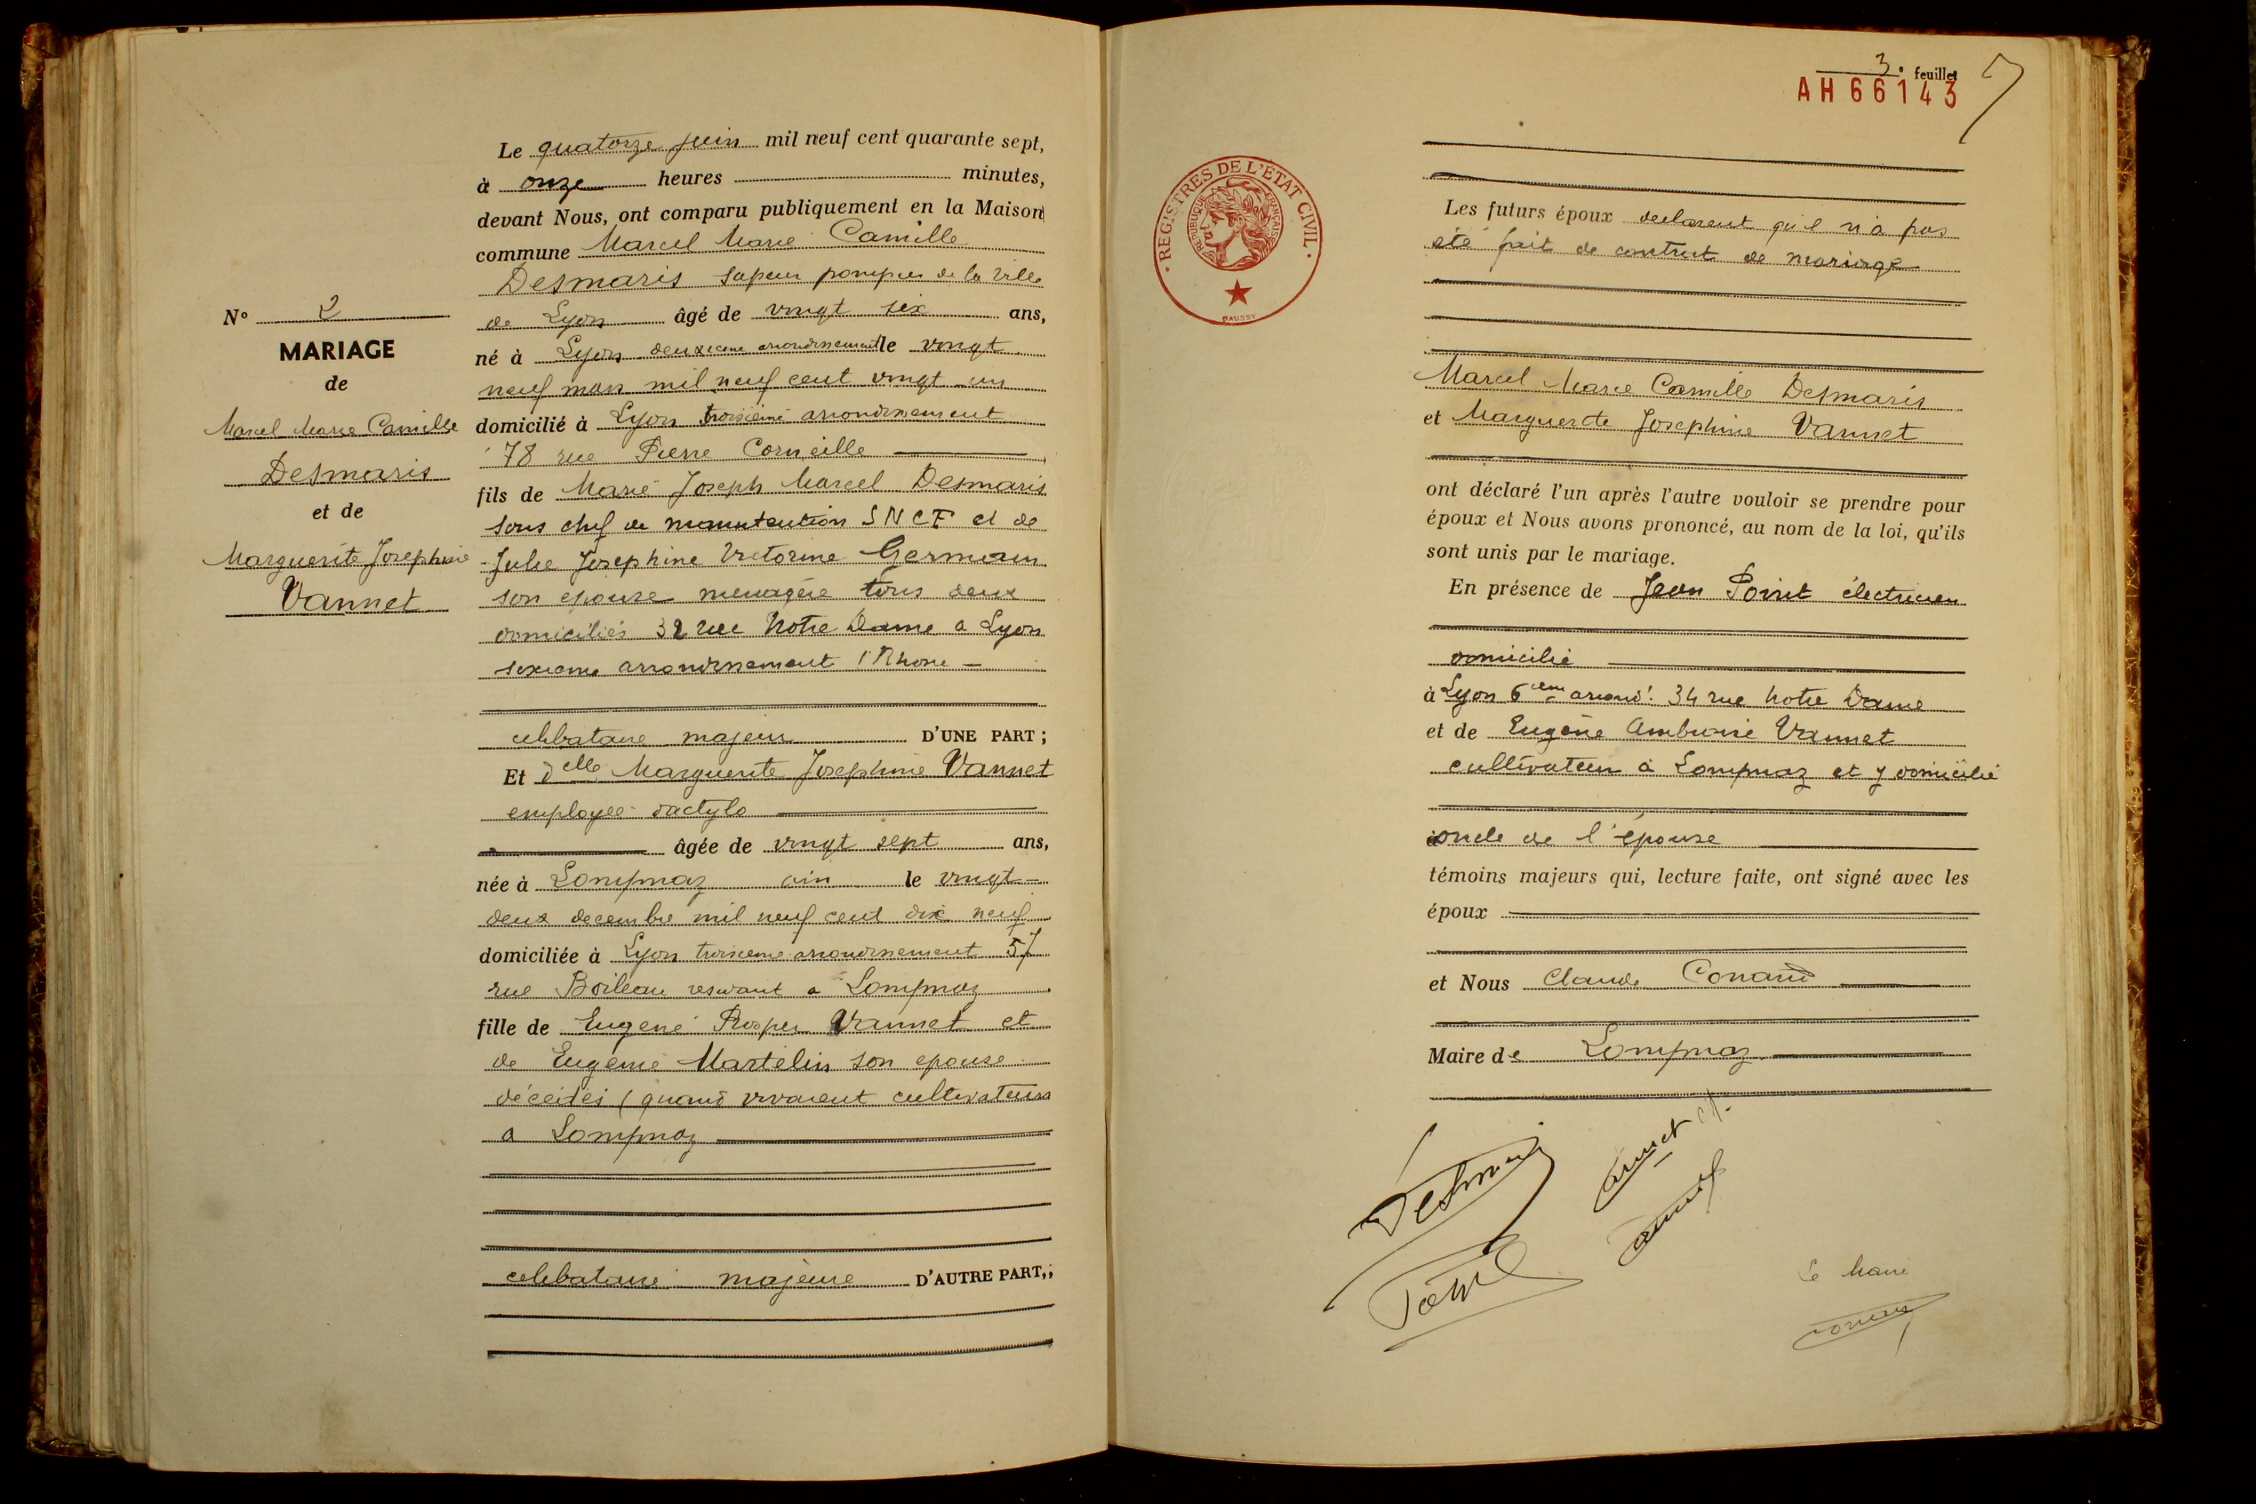 N° 2
MARIAGE
de
Marcel Marie Camille
Desmaris
et de
Marguerite Josephine
Vannet
Le quatorze juin mil neuf cent quarante sept,
à onze heures minutes,
devant Nous, ont comparu publiquement en la Maison
commune Marcel Marie Camille
Desmaris sapeur pompier de la ville
de Lyon âgé de vingt six ans,
né à Lyon deuxieme arrondissement le vingt
neuf mars mil neuf cent vingt un
domicilié à Lyon troisième arrondissement
78 rue Pierre Corneille
fils de Marie Joseph Marcel Desmaris
sous chef de manutention SNCF et de
Julie Josephine Victorine Germain
son epouse menagère tous deux
domiciliés 32 rue Notre Dame a Lyon
sixieme arrondissement (Rhone
celibataire majeur D'UNE PART ;
Et Delle Marguerite Josephine Vannet
employée dactylo
âgée de vingt sept ans,
née à Lompnaz ain le vingt-
deux decembre mil neuf cent dix neuf
domiciliée à Lyon troisieme arrondissement 57
rue Boileau residant a Lompnaz
fille de Eugène Prosper Vannet et
de Eugénie Martelin son epouse
décédés (quand vivaient cultivateurs
a Lompnaz
celibataire majeure D'AUTRE PART,;
3e feuillet
AH66143
7
REGISTRES DE L'ETAT CIVIL
REPUBLIQUE FRANÇAISE
DAUSSY
Les futurs époux declarent qu'il n'a pas
été fait de contrat de mariage
Marcel Marie Camille Desmaris
et Marguerite Josephine Vannet
ont déclaré l'un après l'autre vouloir se prendre pour
époux et Nous avons prononcé, au nom de la loi, qu'ils
sont unis par le mariage.
En présence de Jean électricien
domicilié
à Lyon 6eme arrondt. 34 rue Notre Dame
et de Eugène Ambroise Vannet
cultivateur à Lompnaz et y domicilié
oncle de l'épouse
témoins majeurs qui, lecture faite, ont signé avec les
époux
et Nous Claude Conand
Maire de Lompnaz
Desmaris
Vannet
Le Maire